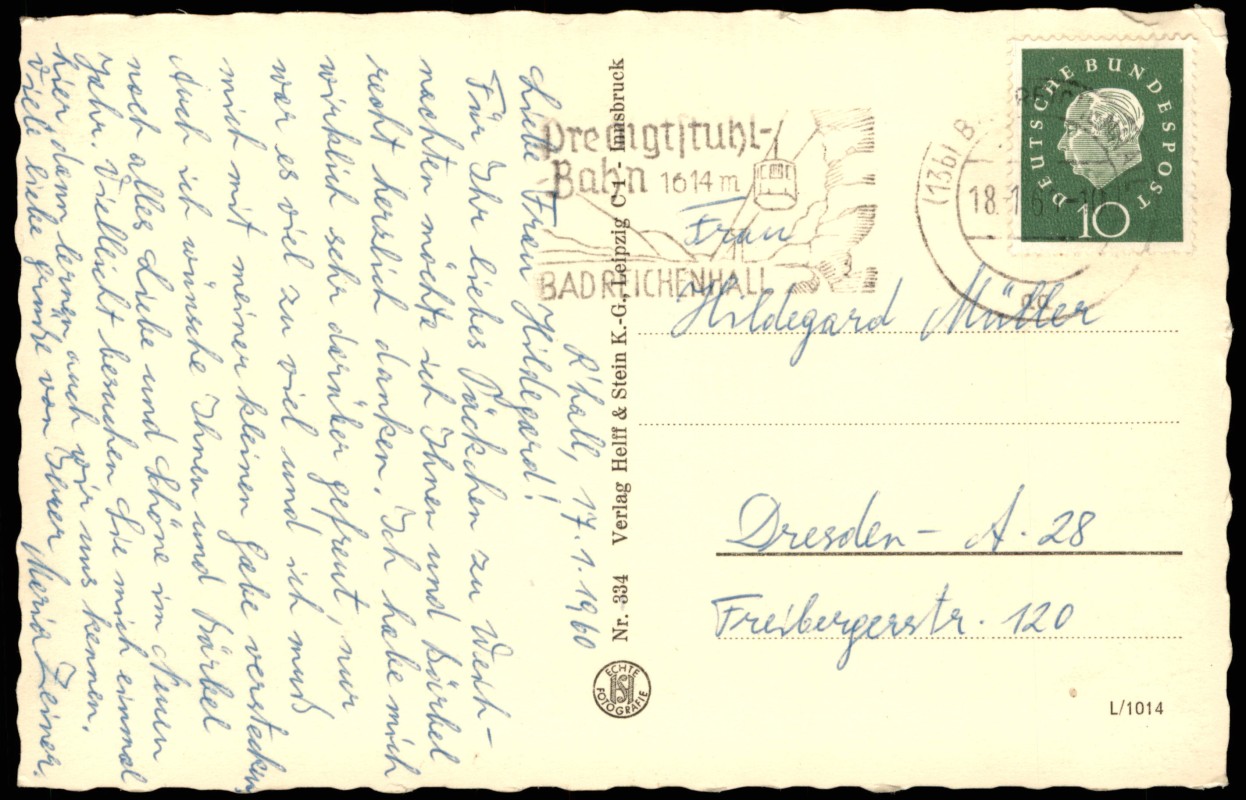 R'hall, 17.1.1960
Liebe Frau Hildegard!
Für Ihr liebes Päckchen zu Weih-
nachten möchte ich Ihnen und Bärbel
recht herzlich danken. Ich habe mich
wirklich sehr darüber gefreut, nur
war es viel zu viel und ich muß
mich mit meiner kleinen Gabe verstecken.
Auch ich wünsche Ihnen und Bärbel
noch alles Liebe und Schöne im Neuen
Jahr. Vielleicht besuchen Sie mich einmal
hier, dann lernen auch wir uns kennen.
Viele liebe Grüße von Ihrer Maria Zeiner.
Nr. 334 Verlag Helff & Stein K.-G., Leipzig C 1 - Innsbruck
ECHTE
FOTOGRAFIE
Predigtstuhl-
Bahn 1614 m
BAD REICHENHALL
(13b) B
18.
DEUTSCHE BUNDESPOST
10
Frau
Hildegard Müller
Dresden - A. 28
Freibergerstr. 120
L/1014